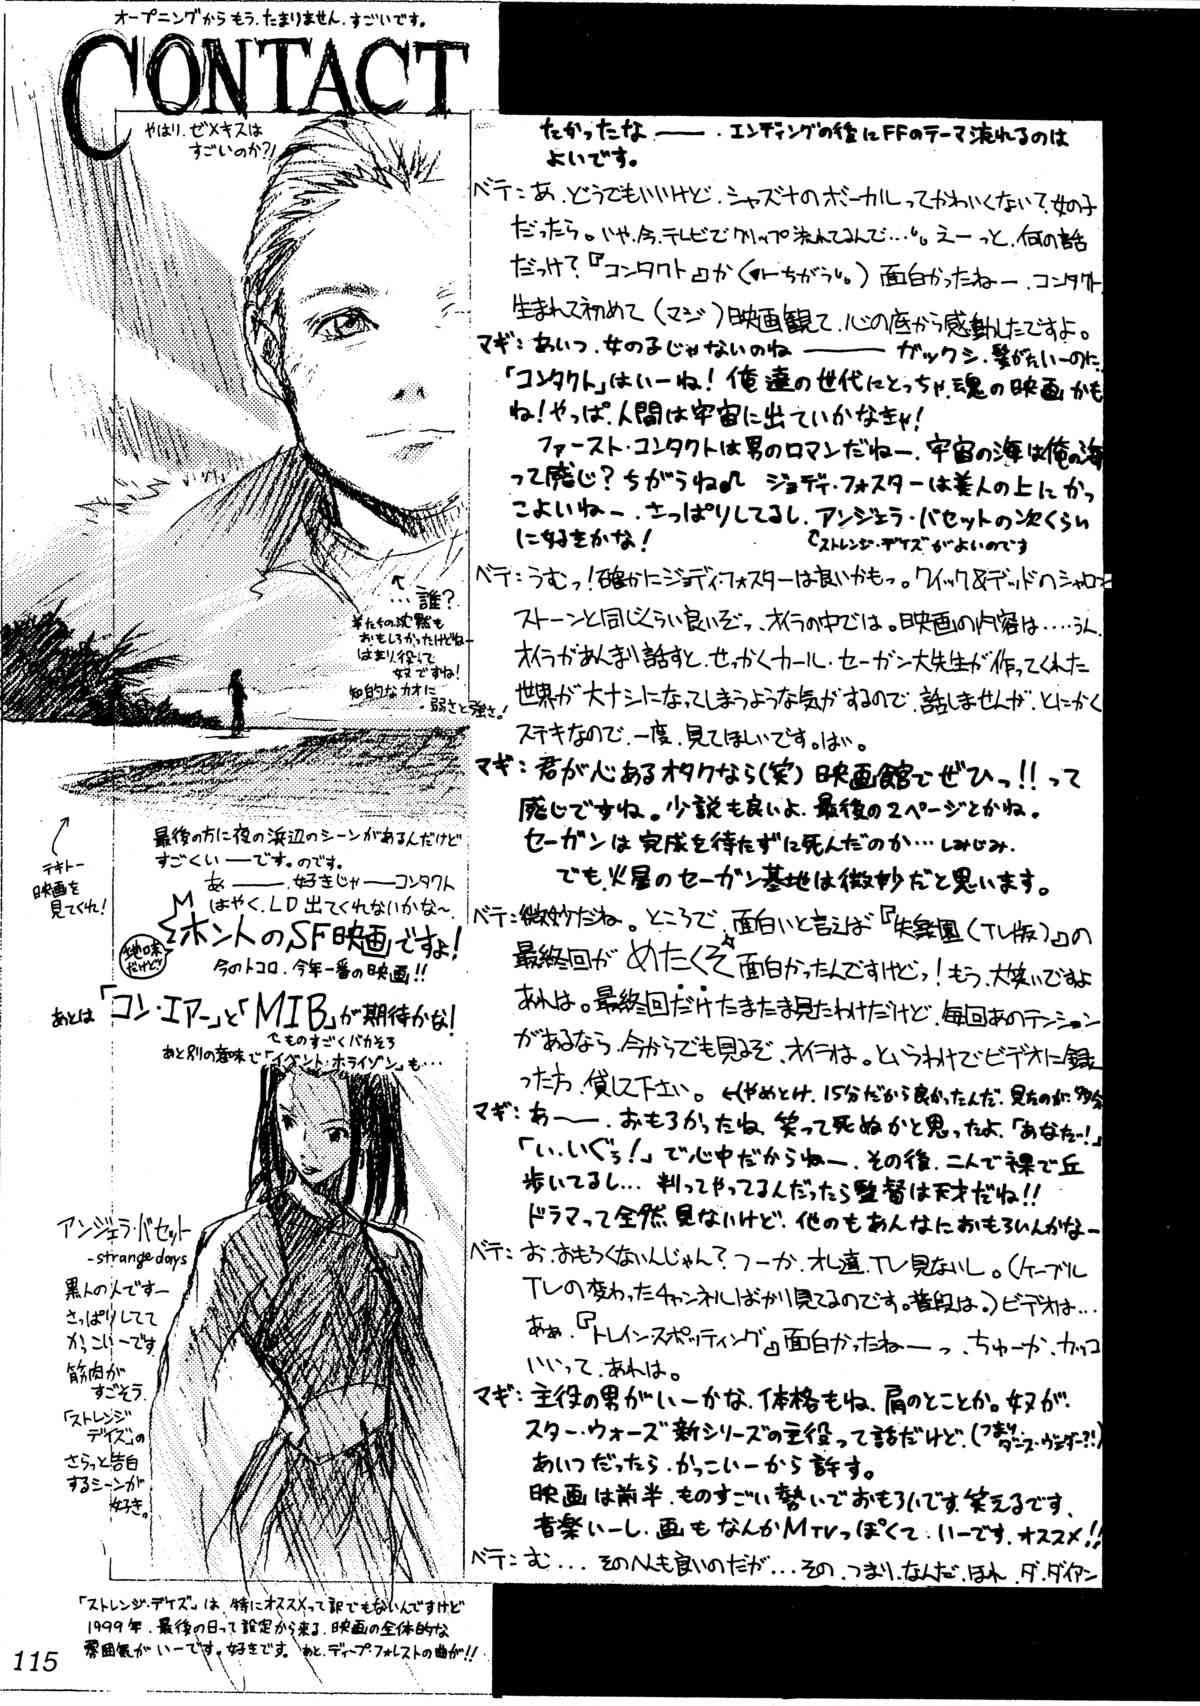 オープニングからもう、たまりません。すごいです。
CONTACT
やはり、ゼメキスは
すごいのか?!
たかったなー——。エンディングの後にFFのテーマ流れるのは
よいです。
ベテ:あ、どうでもいいけど、シャズナのボーカルってかわいくないで?、女の子
だったら。いや、今、テレビでクリップ流れてるんで…。えーっと、何の話
だっけ?『コンタクト』か(←ちがう。)面白かったねー、コンタクト。
生まれて初めて(マジ)映画観て、心の底から感動したですよ。
マギ:あいつ、女の子じゃないのねー——— ガックシ、髪がたいーのに、
「コンタクト」はいーね!俺達の世代にとっちゃ、魂の映画かも
ね!やっぱ、人間は宇宙に出ていかなきゃ!
ファースト・コンタクトは男のロマンだねー、宇宙の海は俺の海
って感じ?ちがうね♪ ジョディ・フォスターは美人の上にかっ
こよいねー、さっぱりしてるし、アンジェラ・バセットの次くらい
に好きかな!
ストレンジ・デイズがよいのです
ベテ:うむっ!確かにジョディ・フォスターは良いかもっ。クイック&デッドのシャロン
ストーンと同じくらい良いぞっ、オイラの中では。映画の内容は……うん、
オイラがあんまり話すと、せっかくカール・セーガン大先生が作ってくれた
世界が大ナシになってしまうような気がするので、話しませんが、とにかく
ステキなので、一度、見てほしいです。はい。
マギ:君が心あるオタクなら(笑)映画館でぜひっ!!って
感じですね。少説も良いよ、最後の2ページとかね。
セーガンは完成を待たずに死んだのか…しみじみ。
でも、火星のセーガン基地は微妙だと思います。
ベテ:微妙だね。ところで、面白いと言えば『失楽園(TV版)』の
最終回がめたくそ面白かったんですけどっ!もう、大笑いですよ
あれは。最終回だけたまたま見たわけだけど、毎回あのテンション
があるなら、今からでも見るぞ、オイラは。というわけでビデオに録
った方、貸して下さい。 ←(やめとけ、15分だから良かったんだ、見たのが。多分
マギ:あー——、おもろかったね、笑って死ぬかと思ったよ、「あなた!」
「い、いぐぅ!」で心中だからねー、その後、二人で裸で丘
歩いてるし…判ってやってるんだったら監督は天才だね!!
ドラマって全然見ないけど、他のもあんなにおもろいんかなー
ベテ:お、おもろくないんじゃん?つーか、オレ達、TV見ないし。(ケーブル
TVの変わったチャンネルばかり見てるのです。普段は。)ビデオは…
あぁ、『トレインスポッティング』面白かったねーっ、ちゅーか、カッコ
いいって、あれは。
マギ:主役の男がいーかな、体格もね、肩のとことか。奴が、
スター・ウォーズ新シリーズの主役って話だけど、(つまりダース・ヴェーダー?!)
あいつだったら、かっこいーから許す。
映画は前半、ものすごい勢いでおもろいです、笑えるです、
音楽いーし、画もなんかMTVっぽくて、いーです、オススメ!!
ベテ:む…、そのへんも良いのだが…その、つまり、なんだ、ほれ、ダ、ダイアン
…誰?
羊たちの沈黙も
おもしろかったけどねー
はまり役って
奴ですね!
知的なカオに
弱さと強さ!
テキトー
映画を
見てくれ!
最後の方に夜の浜辺のシーンがあるんだけど
すごくいーです。のです。
あー——、好きじゃーコンタクト
はやく、LD出てくれないかな〜、
地味だけど
ホントのSF映画ですよ!
今のトコロ、今年一番の映画!!
あとは「コン・エアー」と「MIB」が期待かな!
ものすごくバカそう
あと別の意味で「イベント・ホライゾン」も…
アンジェラ・バセット
-strange days
黒人の人ですー
さっぱりしてて
かっこいーです
筋肉が
すごそう
「ストレンジ
デイズ」の
さらっと告白
するシーンが
好き。
「ストレンジ・デイズ」は、特にオススメって訳でもないんですけど
1999年、最後の日って設定から来る、映画の全体的な
雰囲気がいーです。好きです。あと、ディープ・フォレストの曲が!!
115